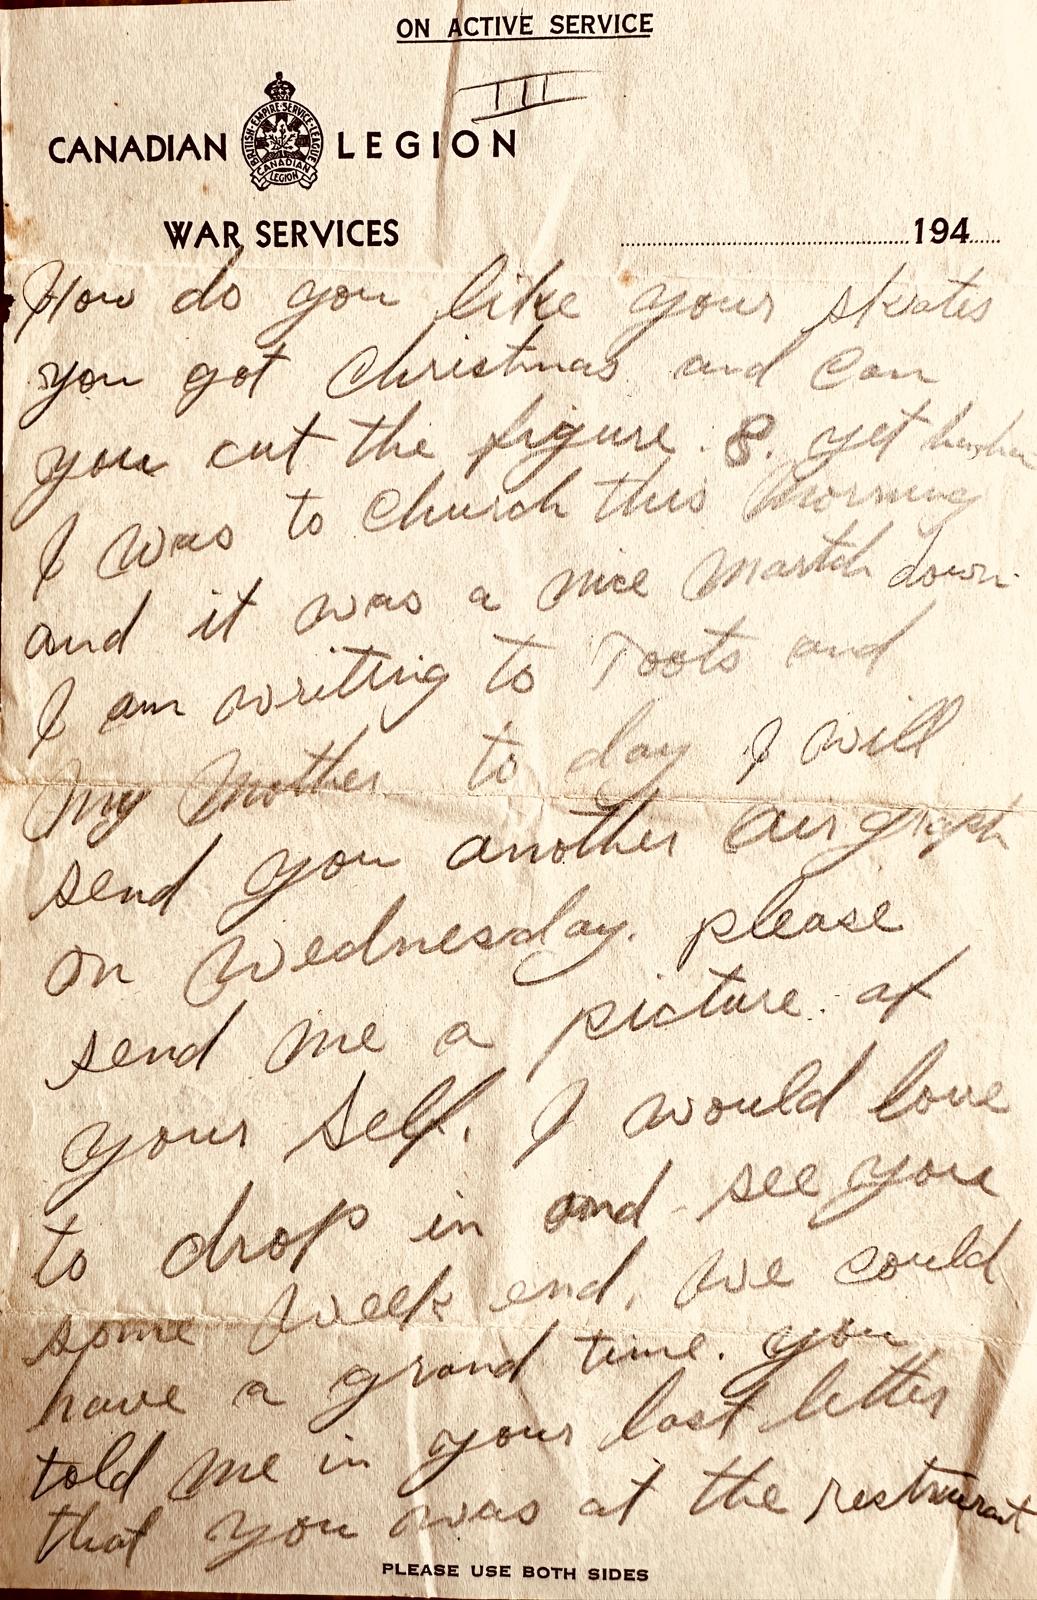 ON ACTIVE SERVICE
III
CANADIAN LEGION
BRITISH·EMPIRE·SERVICE·LEAGUE
CANADIAN
LEGION
WAR SERVICES
194
How do you like your skates
you got Christmas and can
you cut the figure . 8. yet
I was to Church this morning
and it was a nice martch down
I am writting to Toots and
my Mother to day I will
send you another Air graph
on Wednesday. please
send me a picture of
your self. I would love
to drop in and see you
some week end, we could
have a grand time. you
told me in your last letter
that you was at the resturant
PLEASE USE BOTH SIDES